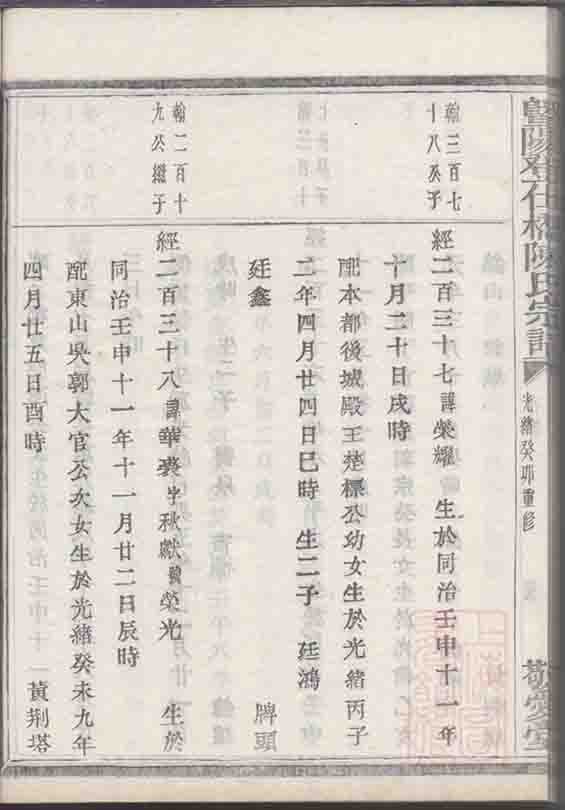 暨陽孝在橋陳氏宗譜
光緒癸卯重修
敬愛堂
翰二百七
十八公子
經二百三十七諱榮耀 生於同治壬申十一年
十月二十日戌時
配本都後城殿王楚標公幼女生於光緒丙子
二年四月廿四日巳時 生二子 廷鴻
廷鑫 牌頭
翰二百十
九公繼子
經二百三十八諱華褒字秋獻號榮光 生於
同治壬申十一年十一月廿二日辰時
配東山吳郭大官公次女生於光緒癸未九年
四月廿五日酉時 黃荆塔